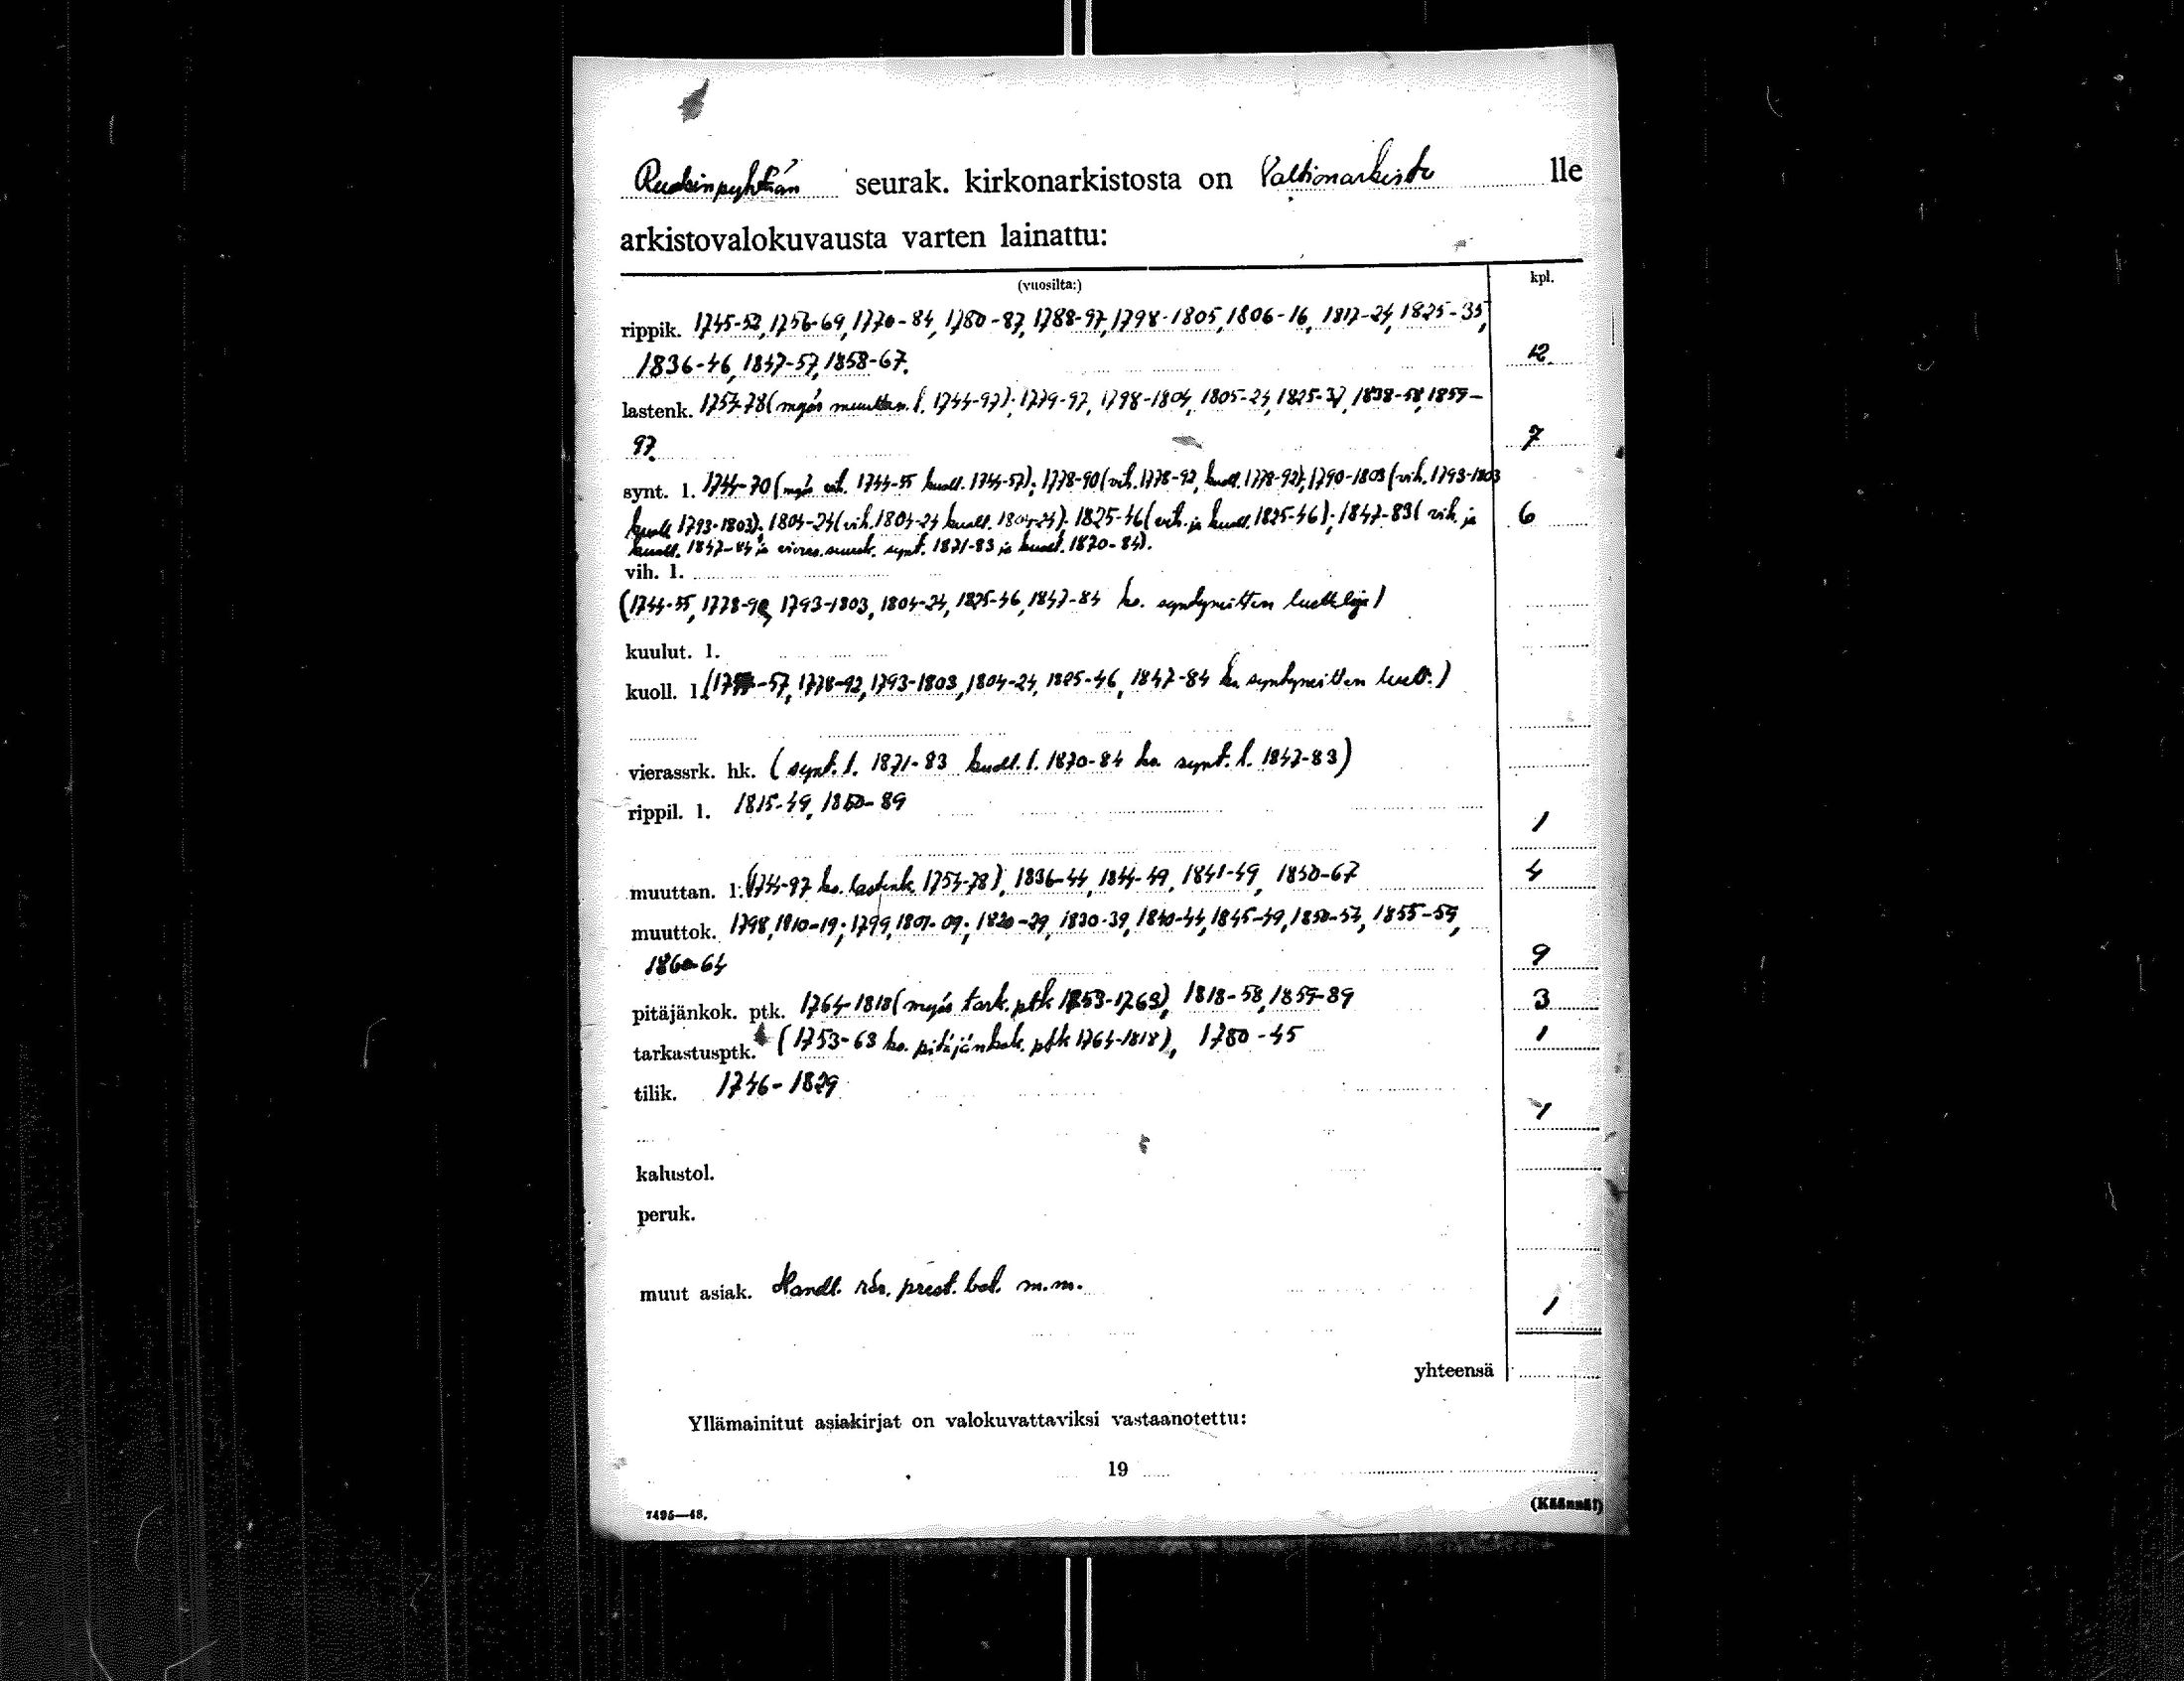 Ruotsinpyhtään seurak. kirkonarkistosta on Valtionarkisto lle
arkistovalokuvausta varten lainattu:
(vuosilta:) kpl.
rippik. 1745-52, 1756-69, 1770-84, 1780-87, 1788-97, 1798-1805, 1806-16, 1817-24, 1825-35,
1836-46, 1847-57, 1858-67. 12
lastenk. 1754-78 (myös muuttan. l. 1744-97); 1779-97, 1798-1804, 1805-24, 1825-37, 1838-58, 1859-
97. 7
synt. l. 1744-70 (myös vih. 1744-55 kuoll. 1744-57); 1778-90 (vih. 1778-92, kuoll. 1778-92); 1790-1803 (vih. 1793-1803
kuoll. 1793-1803); 1804-24 (vih. 1804-24 kuoll. 1804-24); 1825-46 (vih. ja kuoll. 1825-46); 1847-83 (vih. ja 6
kuoll. 1847-84 ja vieras. seurak. synt. 1871-83 ja kuoll. 1870-84).
vih. l.
(1744-55, 1778-92, 1793-1803, 1804-24, 1825-46, 1847-84 ks. syntyneitten luetteloja)
kuulut. l.
kuoll. l. -57, 1778-92, 1793-1803, 1804-24, 1825-46, 1847-84 ks. syntyneitten luett.)
vierassrk. hk. (synt. l. 1871-83 kuoll. l. 1870-84 ks. synt. l. 1847-83)
rippil. l. 1815-49, 1850-89
1
muuttan. l. (1744-97 ks. lastenk. 1754-78), 1836-44, 1844-49, 1841-49, 1850-67 4
muuttok. 1798, 1810-19; 1799, 1801-09; 1820-29, 1830-39, 1840-44, 1845-49, 1850-54, 1855-59,
1860-64 9
pitäjänkok. ptk. 1764-1818 (myös tark. ptk 1753-1763), 1818-58, 1859-89 3
tarkastusptk. (1753-63 ks. pitäjänkok. ptk 1764-1818), 1780-45 1
tilik. 1746-1829
1
kalustol.
peruk.
muut asiak. Handl. rör. prest. bol. m.m.
1
yhteensä
Yllämainitut asiakirjat on valokuvattaviksi vastaanotettu:
19
7495—48. (Käännä!)